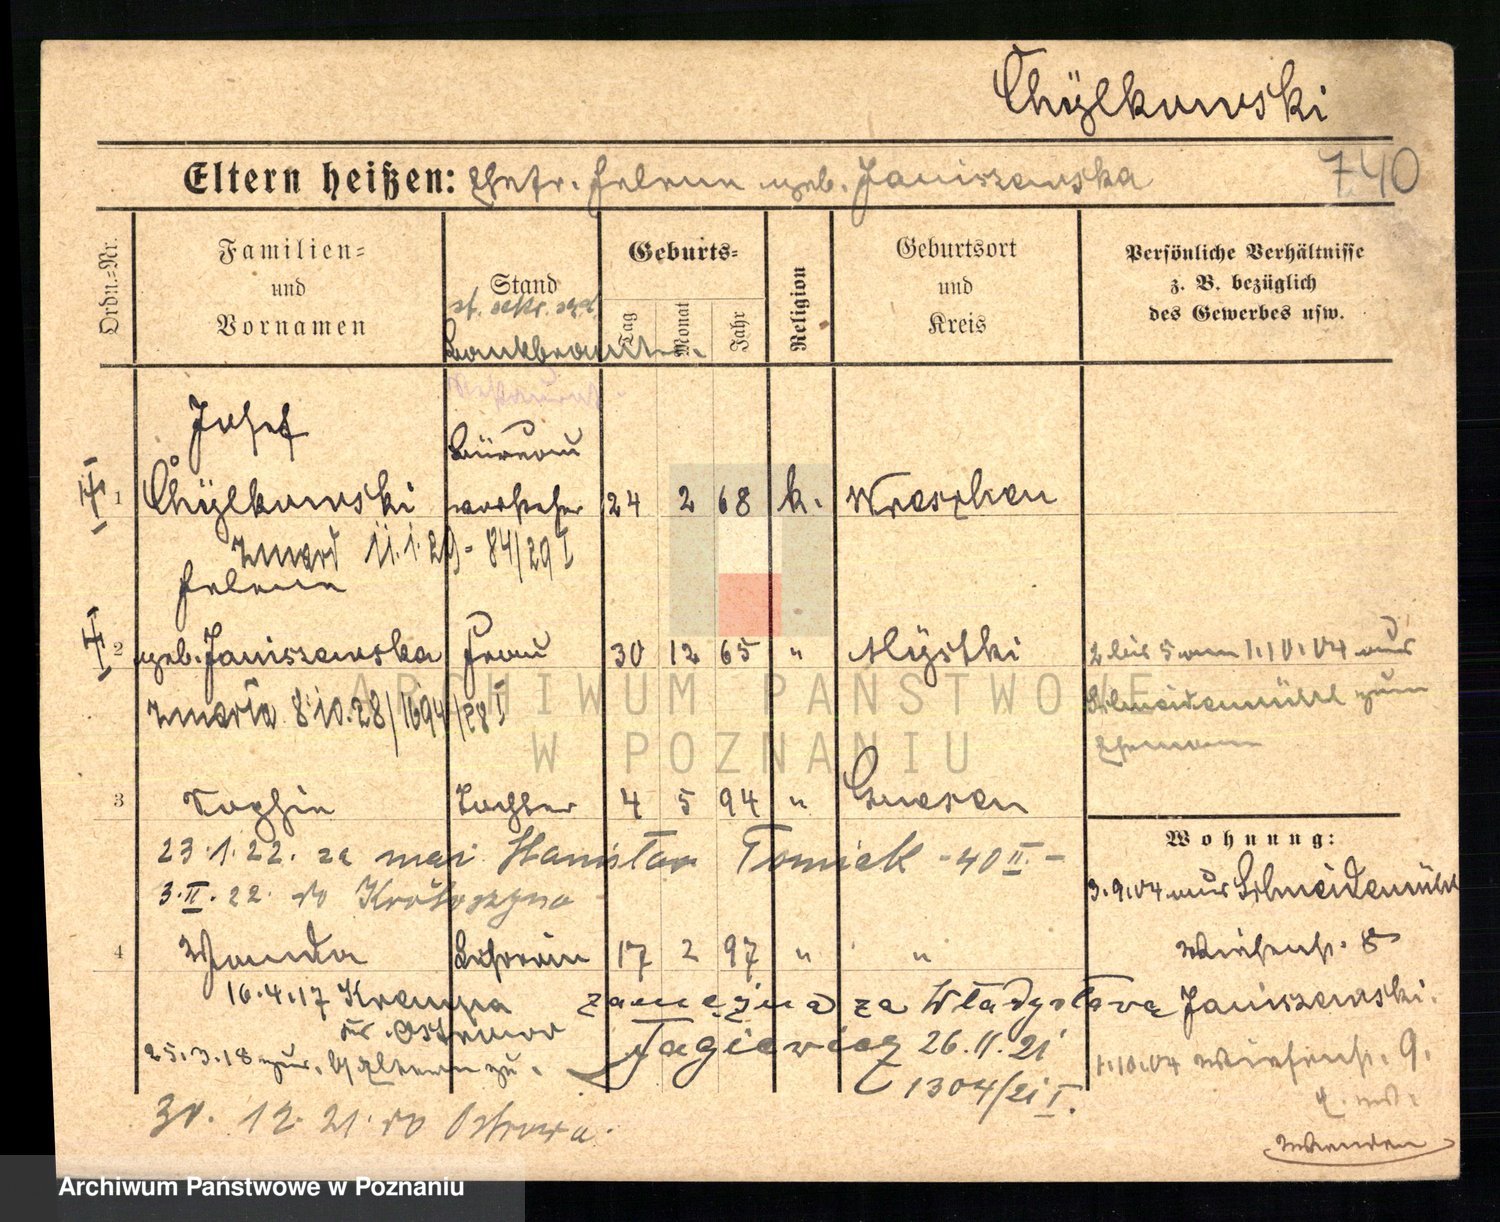 Chÿlkowski
Eltern heißen: Ehefr. Helene geb. Janiszewska
740
Ordn.-Nr.
Familien-
und
Vornamen
Stand
Geburts-
Tag
Monat
Jahr
Religion
Geburtsort
und
Kreis
Persönliche Verhältnisse
z. B. bezüglich
des Gewerbes usw.
Josef
Büreau
1 Chÿlkowski vorsteher 24 2 68 k. Wreschen
zmarł 11.1.29 - 84/29 I
Helene
2 geb. Janiszewska Frau 30 12 65 "
2 bis 5 am 1.10.04 aus
zmarła 8.10.28/1694/28 I
Schneidemühl zum
Ehemann
3 Sophie Tochter 4 5 94 " Gnesen
23.1.22. za mąż Stanisław Tomiak - 40 II. -
3.II.22. do Krotoszyna
4 Wanda 17 2 97 " "
16.4.17 Krempa
Kr. Ostrowo
25.3.18 zur. b/ Eltern zu.
zamężna za Władysława
26.11.21
1304/21 I.
30.12.21. do Ostrowa.
Wohnung:
3.9.04 aus Schneidemühl
8
Janiszewski.
1.10.04 9.
ARCHIWUM PAŃSTWOWE
W POZNANIU
Archiwum Państwowe w Poznaniu